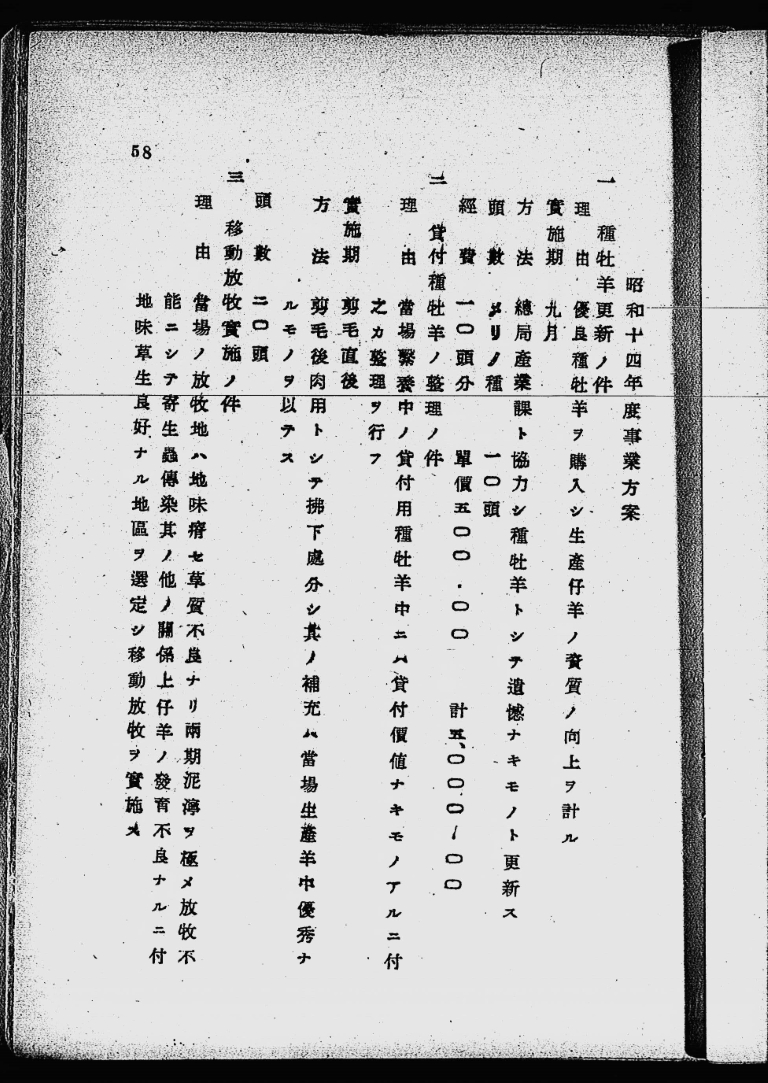 昭和十四年度事業方案
一 種牡羊更新ノ件
理由 優良種牡羊ヲ購入シ生産仔羊ノ資質ノ向上ヲ計ル
實施期 九月
方法 總局產業課ト協力シ種牡羊トシテ遺憾ナキモノト更新ス
頭數 メリノ種 一〇頭
經費 一〇頭分 單價五〇〇.〇〇 計五、〇〇〇/〇〇
二 貸付種牡羊ノ整理ノ件
理由 當場繫養中ノ貸付用種牡羊中ニハ貸付價値ナキモノアルニ付
之カ整理ヲ行フ
實施期 剪毛直後
方法 剪毛後肉用トシテ拂下處分シ其ノ補充ハ當場生產羊中優秀ナ
ルモノヲ以テス
頭數 二〇頭
三 移動放牧實施ノ件
理由 當場ノ放牧地ハ地味瘠セ草質不良ナリ兩期泥濘ヲ極メ放牧不
能ニシテ寄生蟲傳染其ノ他ノ關係上仔羊ノ發育不良ナルニ付
地味草生良好ナル地區ヲ選定シ移動放牧ヲ實施ス
58